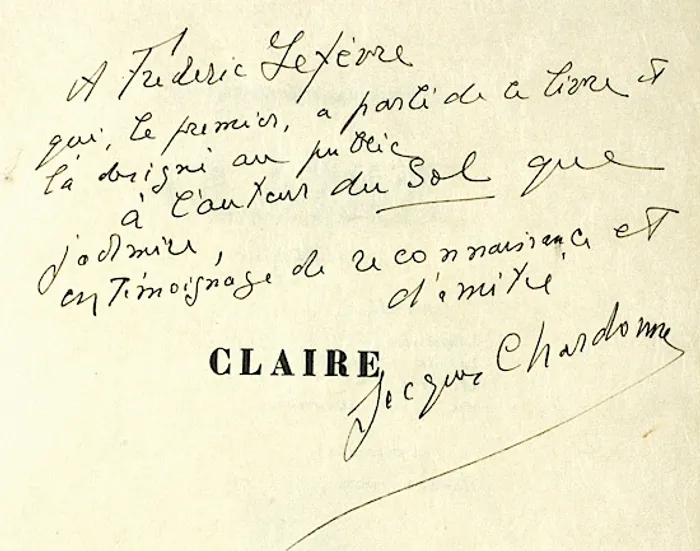 A Frédéric Lefèvre
qui, le premier, a parlé de ce livre et
l'a désigné au public
à l'auteur du Sol que
j'admire,
en témoignage de reconnaissance et
d'amitié
CLAIRE
Jacques Chardonne